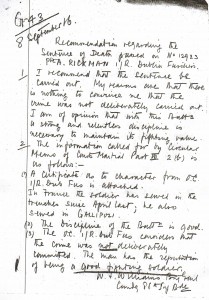 G 43
8 September 16.
Recommendation regarding the
Sentence of Death passed on No 12923
Pte A. RICKMAN 1/R. Dublin Fusiliers.
1 I recommend that the sentence be
carried out. My reasons are that there
is nothing to convince me that the
crime was not deliberately carried out.
I am of opinion that in this Battn
a strong and relentless discipline is
necessary to maintain its fighting value.
2 The information called for by Circular
Memo of Courts Martial Part III 2 (b) is
as follows:-
(1) A Certificate as to character from O.C.
1/R. Dub Fus is attached.
In France the soldier has served in the
trenches since April last, he also
served in GALLIPOLI.
(2) The discipline of the Battn is good.
(3) The O.C. 1/R. Dub Fus considers that
the crime was not deliberately
committed. The man has the reputation
of being a good fighting soldier.
Comdg
Bde